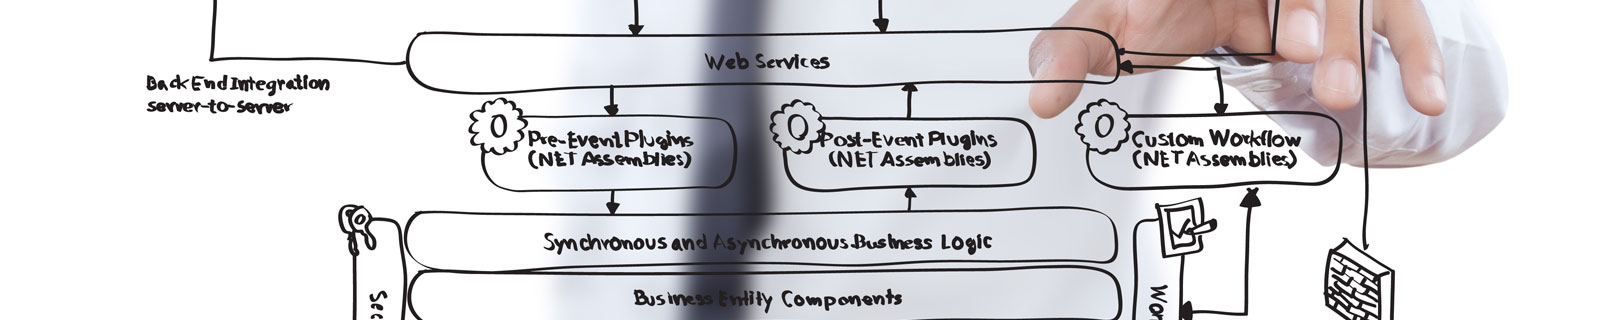 Web Services
Back End Integration
server-to-server
Pre-Event Plugins
(NET Assemblies)
Post-Event Plugins
(NET Assemblies)
Custom Workflow
(NET Assemblies)
Synchronous and Asynchronous Business Logic
Business Entity Components